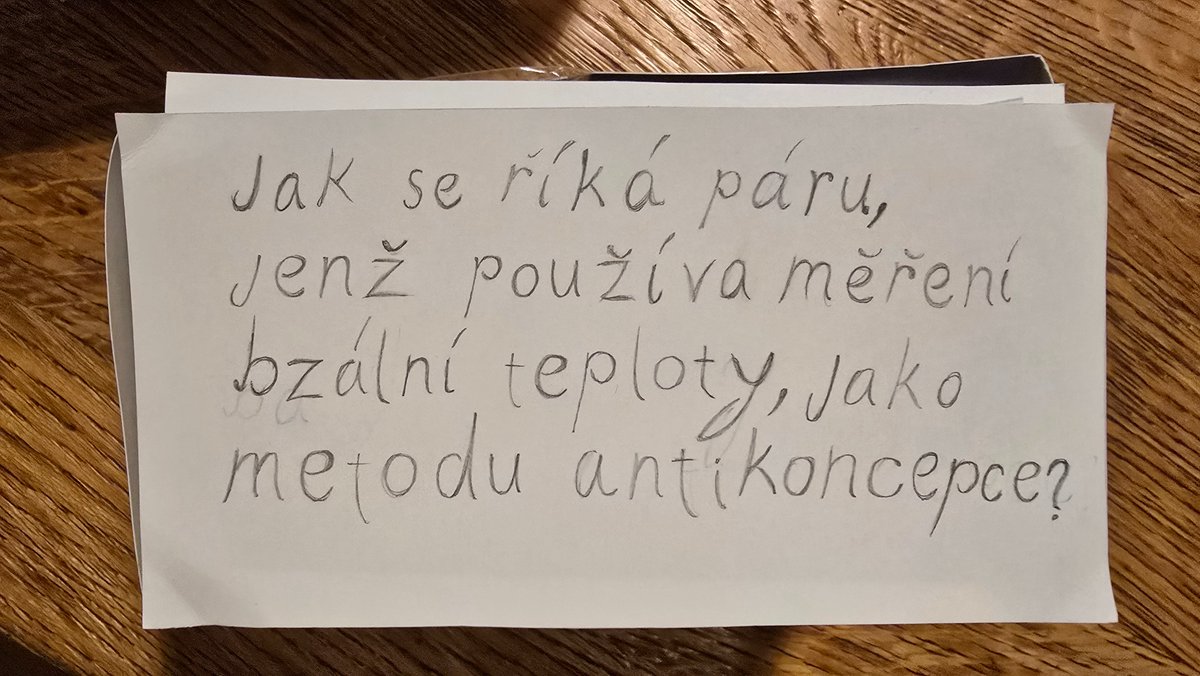 Jak se říká páru,
jenž používa měření
bzální teploty, jako
metodu antikoncepce?